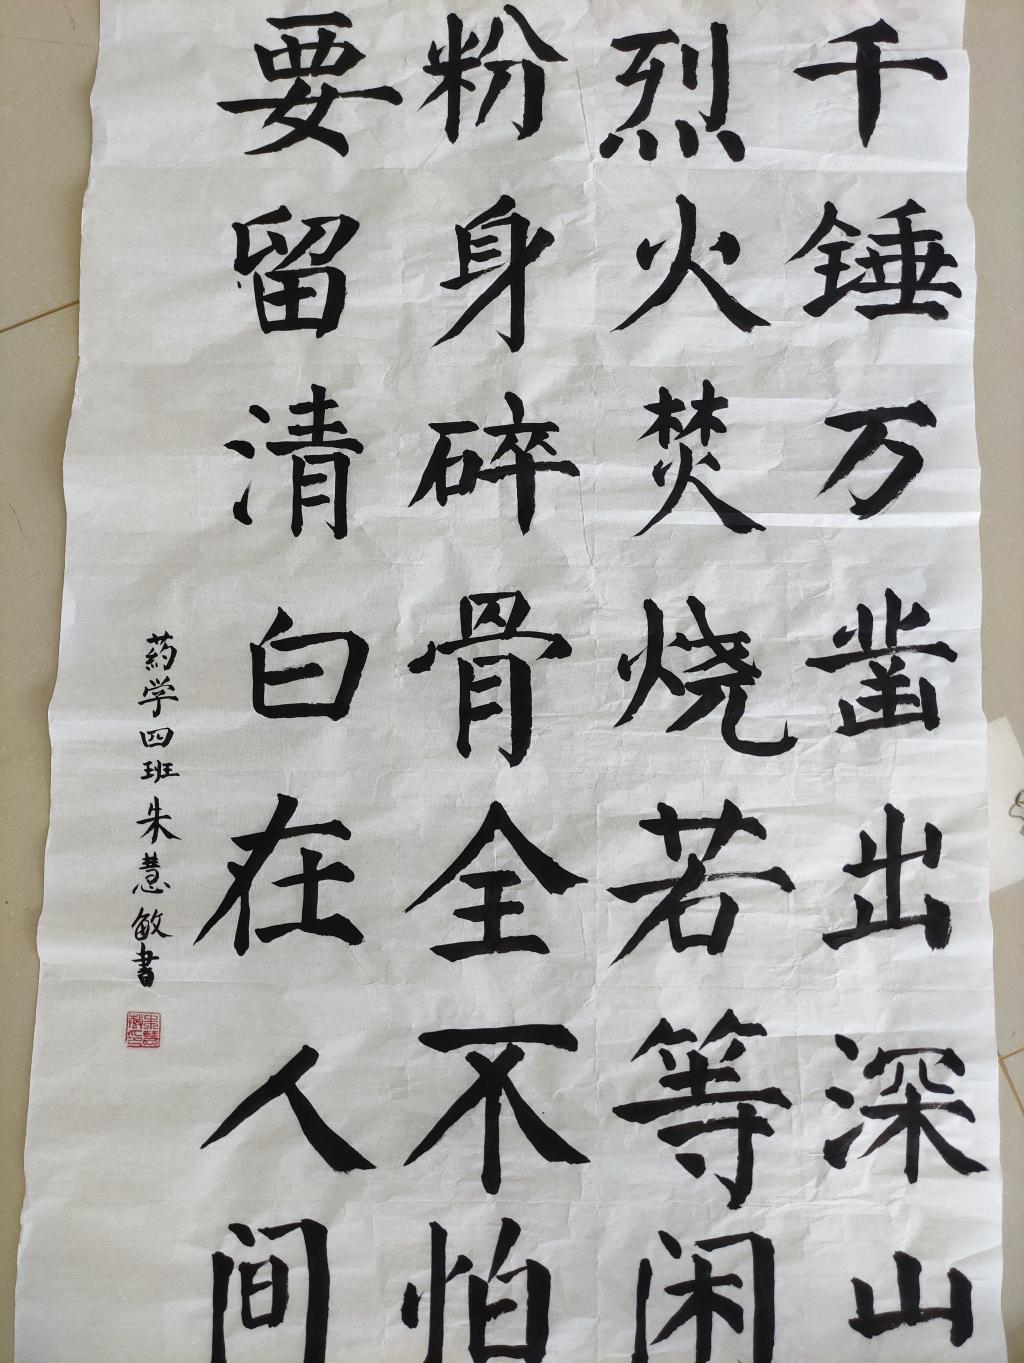 千锤万凿出深山
烈火焚烧若等闲
粉身碎骨全不怕
要留清白在人间
药学四班朱慧敏書